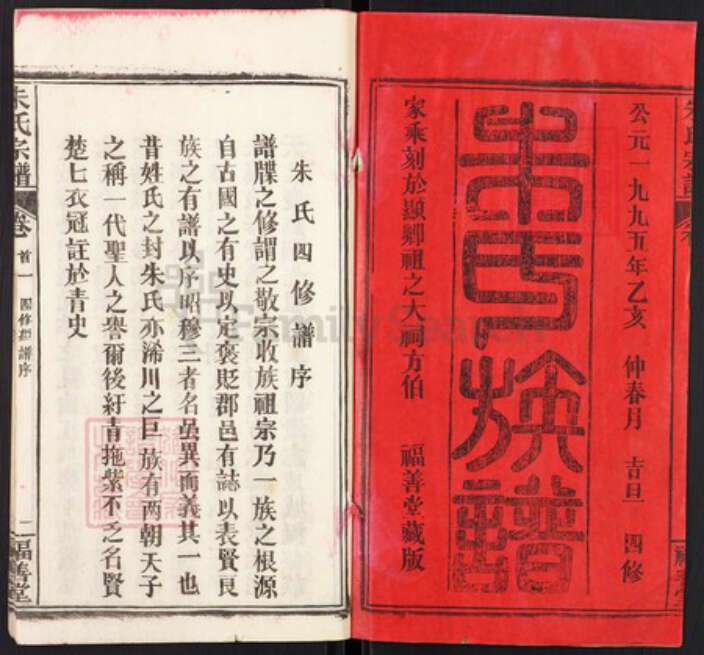 公元一九九五年乙亥 仲春月 吉旦 四修
朱氏族譜
家乘刻於顯卿祖之大祠方伯 福善堂藏版
朱氏四修譜序
譜牒之修謂之敬宗收族祖宗乃一族之根源
自古國之有史以定褒貶郡邑有誌以表賢良
族之有譜以序昭穆三者名虽異而義其一也
昔姓氏之封朱氏亦浠川之巨族有两朝天子
之稱一代聖人之譽爾後紆青拖紫不乏名賢
楚七衣冠註於青史
朱氏宗譜 卷首一 四修 譜序 二 福善堂
FamilySearch